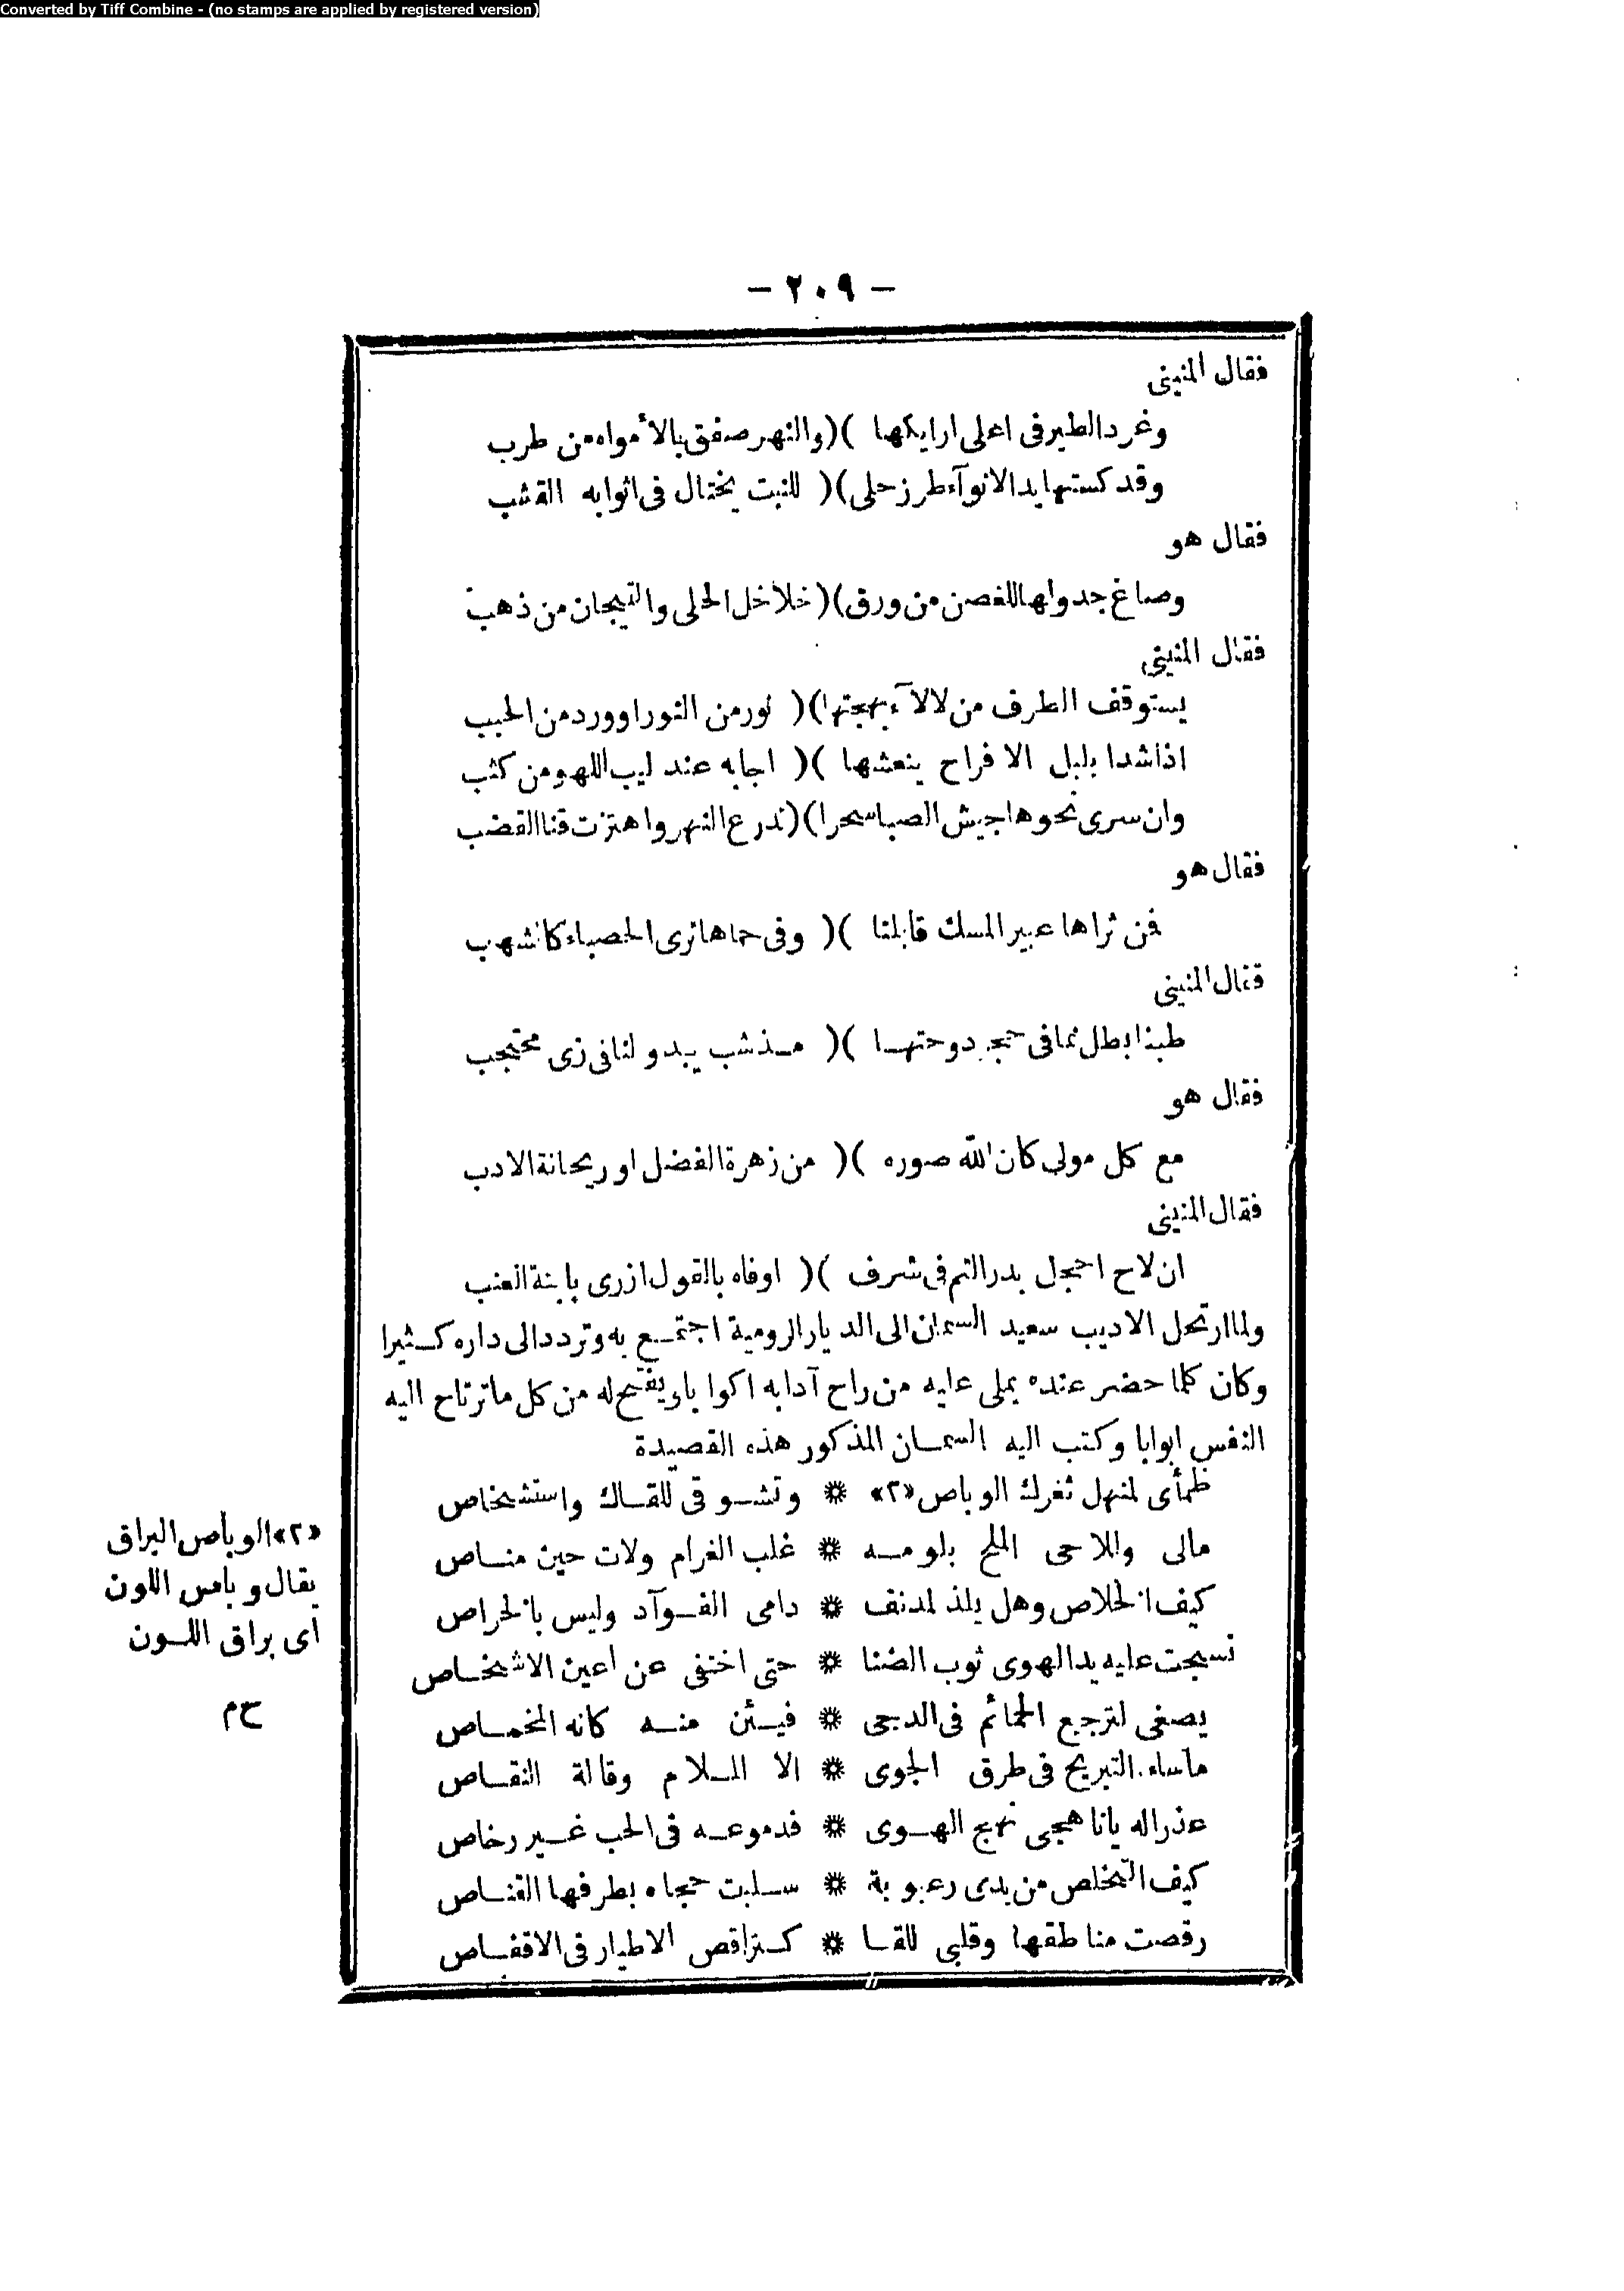 Converted by Tiff Combine - (no stamps are applied by registered version)
— ٢٠٩ —
فقال المنينى
وغرد الطير فى اعلى ارايكها )( والنهر صفق بالأمواه من طرب
وقد كستها يد الانوآء طرز حلى )( للنبت يختال فى اثوابه القشب
فقال هو
وصاغ جدولها للغصن من ورق )( خلاخل الحلى والتيجان من ذهب
فقال المنينى
يستوقف الطرف من لالآء بهجتها )( نور من النور اوورد من الحبب
اذا شدا بلبل الافراح ينعشها )( اجابه عندليب اللهو من كثب
وان سرى نحوها جيش الصبا سحرا )( تدرع النهر واهتزت قنا القضب
فقال هو
فمن ثراها عبير المسك قابلنا )( وفى حماها ترى الحصباء كالشهب
فقال المنينى
طبنا بظل نما فى حجر دوحتها )( مذشب يبدو لنا فى زى محتجب
فقال هو
مع كل مولى كان الله صوره )( من زهرة الفضل او ريحانة الادب
فقال المنينى
ان لاح اخجل بدر التم فى شرف )( اوفاه بالقول ازرى بابنة العنب
ولما ارتحل الاديب سعيد السمان الى الديار الرومية اجتمع به وتردد الى داره كثيرا
وكان كلما حضر عنده يملى عليه من راح آدابه اكوابا ويفتح له من كل ما ترتاح اليه
النفس ابوابا وكتب اليه السمان المذكور هذه القصيدة
ظمأى لمنهل ثغرك الوباص «٢» * وتشوقى للقاك واستشخاص
مالى وللاحى الملح بلومه * غلب الغرام ولات حين مناص
كيف الخلاص وهل يلذ لمدنف * دامى الفوآد وليس بالخراص
نسجت عليه يد الهوى ثوب الضنا * حتى اختفى عن اعين الاشخاص
يصغى لترجع الحمائم فى الدجى * فيئن منه كانه المخماص
ماساء التبريح فى طرق الجوى * الا الملام وقالة النقاص
عذرا له يانا هجى نهج الهوى * فدموعه فى الحب غير رخاص
كيف التخلص من يدى رعبوبة * سلبت حجاه بطرفها القناص
رقصت مناطقها وقلبى للقا * كتراقص الاطيار فى الاقفاص
«٢» الوباص البراق
يقال وباص اللون
اى براق اللون
ح م